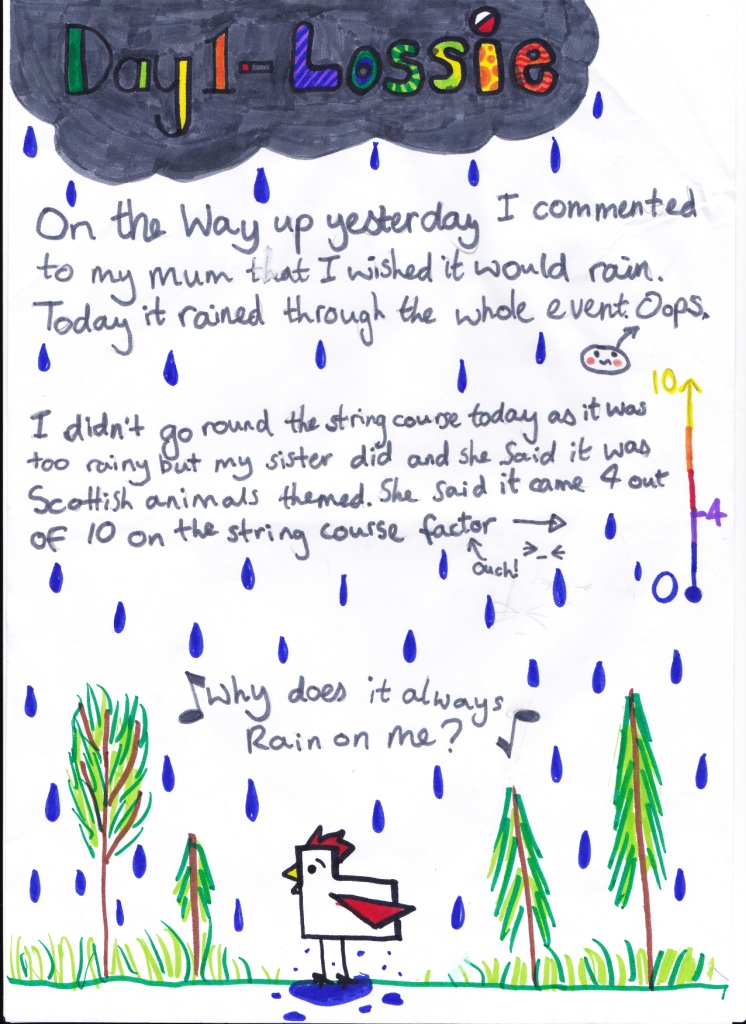 Day 1 - Lossie
On the Way up yesterday I commented
to my mum that I wished it would rain.
Today it rained through the whole event. Oops.
10
I didn't go round the string course today as it was
too rainy but my sister did and she said it was
Scottish animals themed. She said it came 4 out
of 10 on the string course factor →
4
ouch! >_<
0
♪ Why does it always
Rain on me? ♪